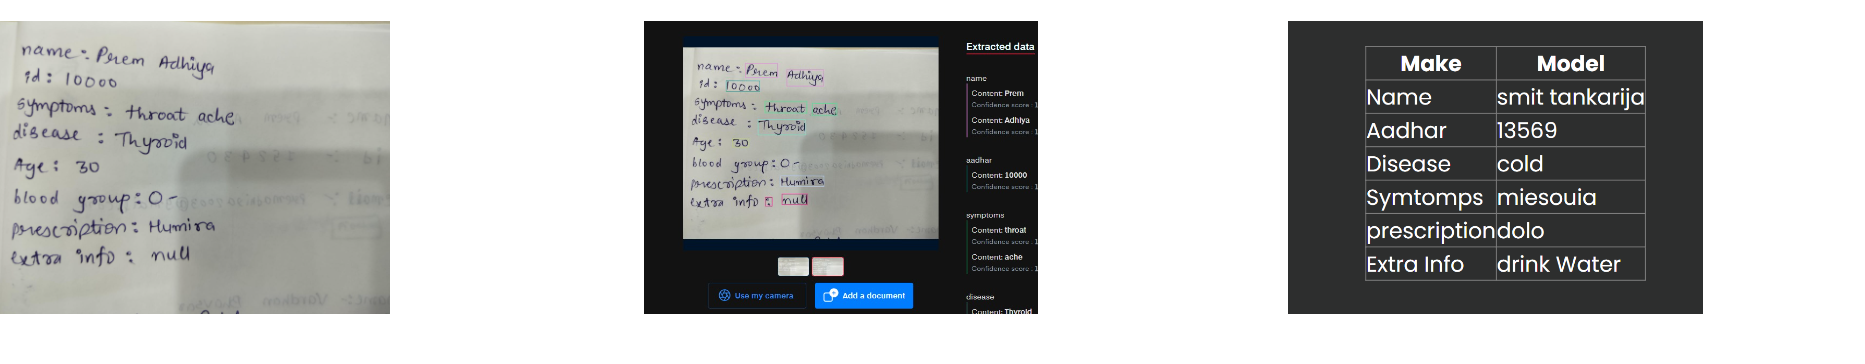 name : Prem Adhiya
id : 10000
symptoms : throat ache
disease : Thyroid
Age : 30
blood group : O -
prescription : Humira
extra info : null
Extracted data
name : Prem Adhiya
id : 10000
symptoms : throat ache
disease : Thyroid
Age : 30
blood group : O -
prescription : Humira
extra info : null
name
Content: Prem
Confidence score : 1
Content: Adhiya
Confidence score : 1
aadhar
Content: 10000
Confidence score : 1
symptoms
Content: throat
Confidence score : 1
Content: ache
Confidence score : 1
disease
Content: Thyroid
Use my camera
Add a document
Make Model
Name smit tankarija
Aadhar 13569
Disease cold
Symtomps miesouia
prescription dolo
Extra Info drink Water